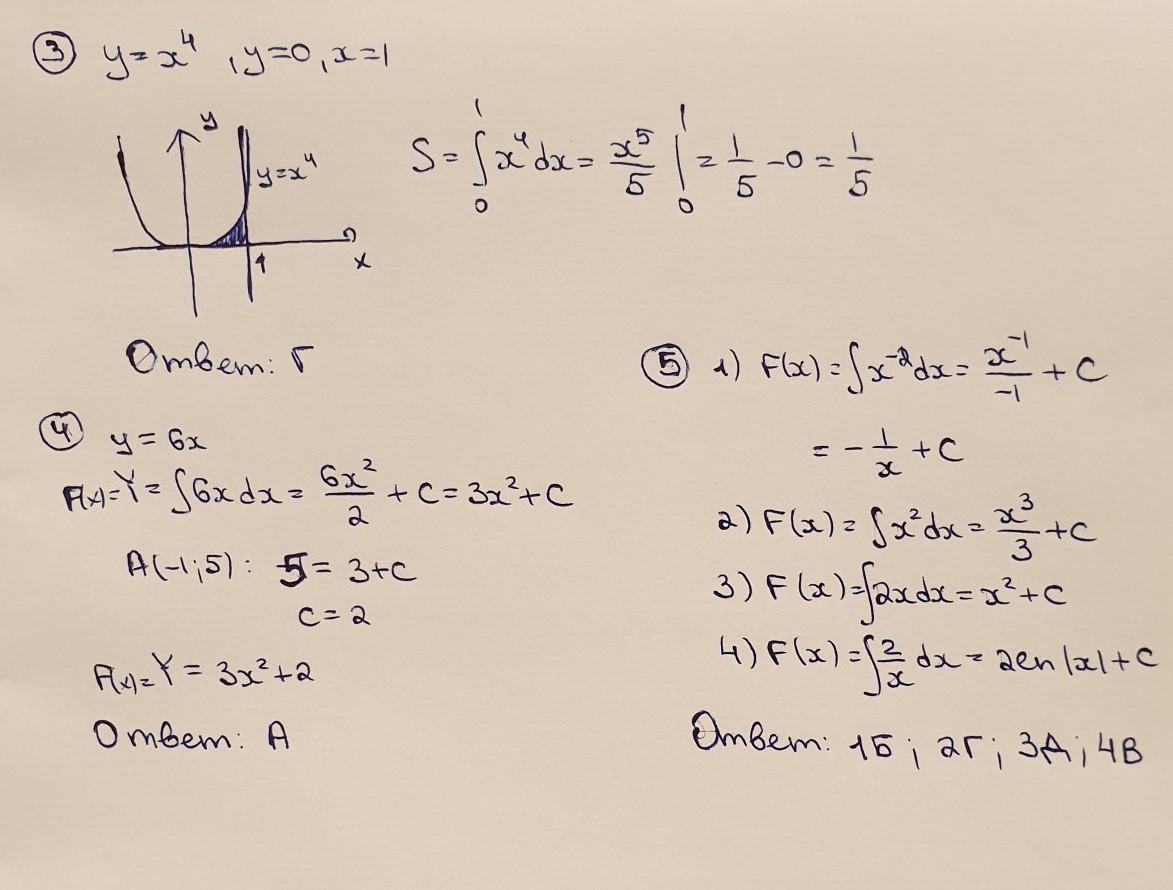 ③ y=x⁴, y=0, x=1
y
y=x⁴
1
x
S = ∫₀¹ x⁴dx = x⁵/5 |₀¹ = 1/5 - 0 = 1/5
Ответ: Г
④ y = 6x
F(x)=Y = ∫6xdx = 6x²/2 + C = 3x²+C
A(-1;5): 5 = 3+C
C = 2
F(x)=Y = 3x²+2
Ответ: А
⑤ 1) F(x) = ∫x⁻²dx = x⁻¹/-1 + C
= - 1/x + C
2) F(x) = ∫x²dx = x³/3 + C
3) F(x)=∫2xdx = x²+C
4) F(x) = ∫2/x dx = 2ln|x|+C
Ответ: 1Б; 2Г; 3А; 4В